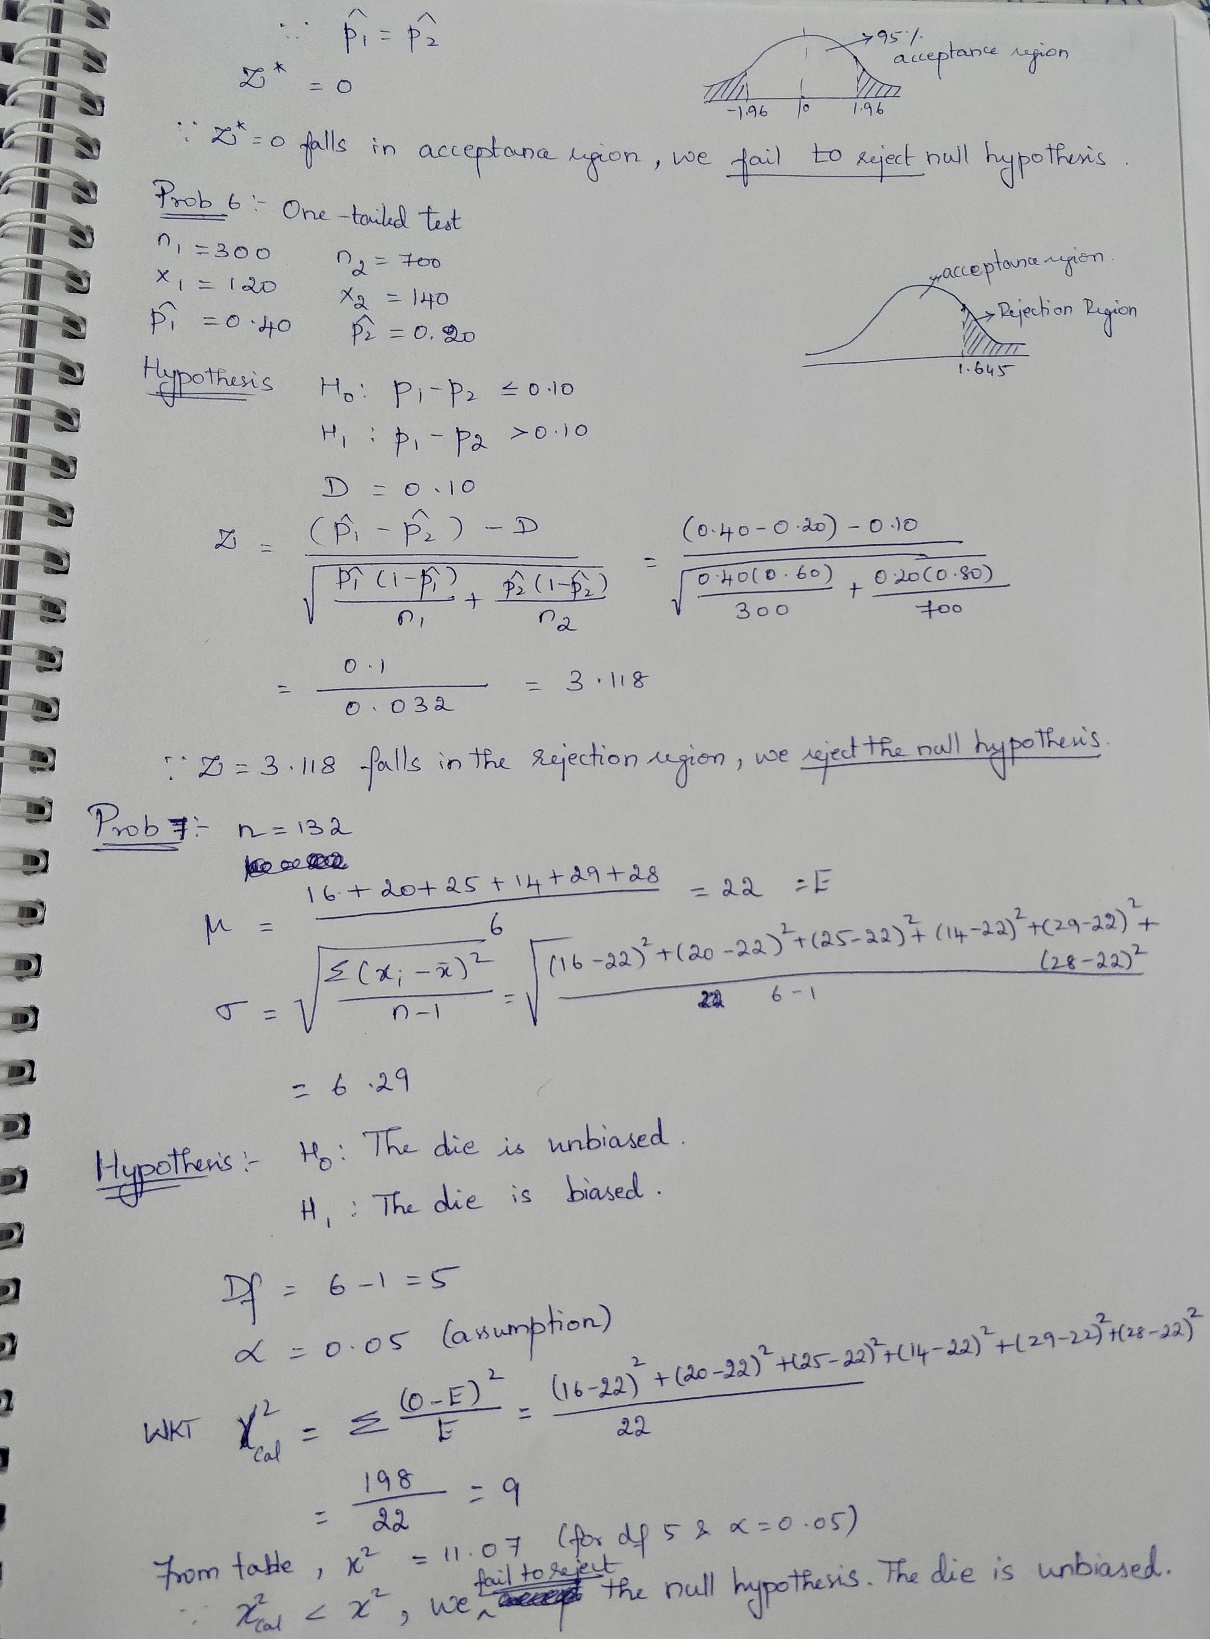 ∵ p̂₁ = p̂₂
Z* = 0
→ 95% acceptance region
-1.96 0 1.96
∵ Z* = 0 falls in acceptance region, we fail to reject null hypothesis.
Prob 6 :- One-tailed test
n₁ = 300 n₂ = 700
x₁ = 120 x₂ = 140
p̂₁ = 0.40 p̂₂ = 0.20
acceptance region.
→ Rejection Region
1.645
Hypothesis H₀ : p₁ - p₂ ≤ 0.10
H₁ : p₁ - p₂ > 0.10
D = 0.10
Z = ((p̂₁ - p̂₂) - D) / √(p̂₁(1-p̂₁)/n₁ + p̂₂(1-p̂₂)/n₂) = ((0.40 - 0.20) - 0.10) / √(0.40(0.60)/300 + 0.20(0.80)/700)
= 0.1 / 0.032 = 3.118
∵ Z = 3.118 falls in the rejection region, we reject the null hypothesis.
Prob 7 :- n = 132
μ = (16 + 20 + 25 + 14 + 29 + 28) / 6 = 22 = E
σ = √(Σ(xᵢ - x̄)² / n-1) = √(((16-22)² + (20-22)² + (25-22)² + (14-22)² + (29-22)² + (28-22)²) / 6-1)
= 6.29
Hypothesis :- H₀ : The die is unbiased.
H₁ : The die is biased.
Df = 6 - 1 = 5
α = 0.05 (assumption)
WKT χ²cal = Σ (O-E)² / E = ((16-22)² + (20-22)² + (25-22)² + (14-22)² + (29-22)² + (28-22)²) / 22
= 198 / 22 = 9
From table, χ² = 11.07 (for df 5 & α = 0.05)
∵ χ²cal < χ², we fail to reject the null hypothesis. The die is unbiased.